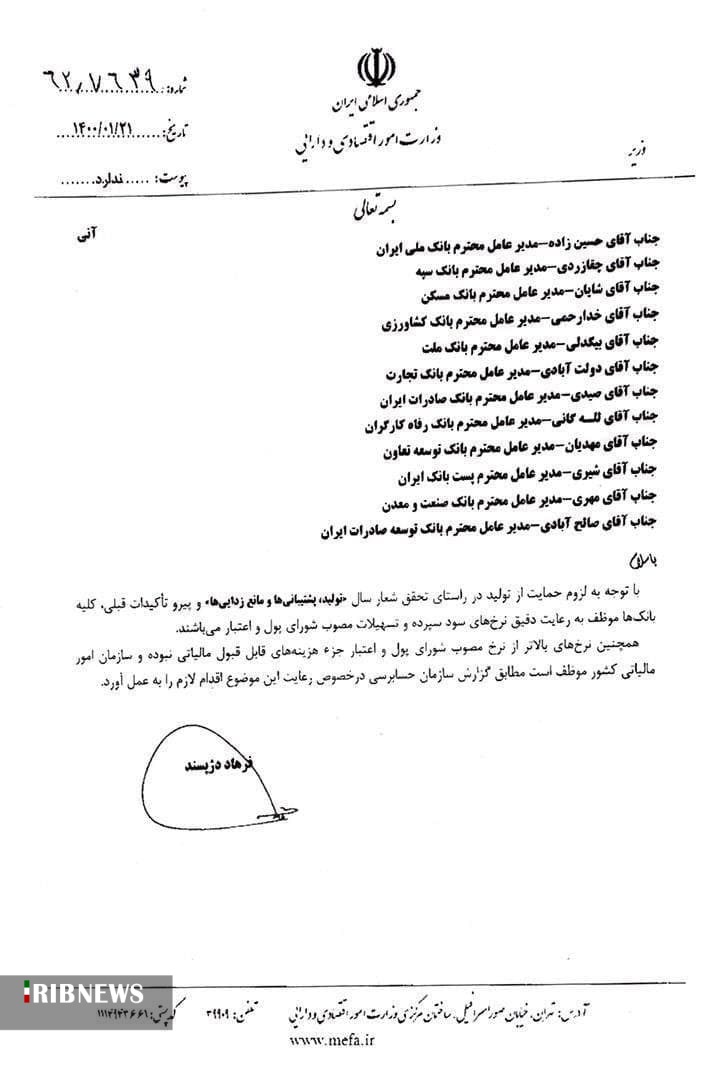 جمهوری اسلامی ایران
وزارت امور اقتصادی و دارایی
وزیر
شماره: ۶۲/۷۶۳۹
تاریخ: ۱۴۰۰/۰۱/۲۱
پیوست: ندارد
بسمه تعالی
آنی
جناب آقای حسین زاده–مدیر عامل محترم بانک ملی ایران
جناب آقای چقازردی–مدیر عامل محترم بانک سپه
جناب آقای شایان–مدیر عامل محترم بانک مسکن
جناب آقای خدارحمی–مدیر عامل محترم بانک کشاورزی
جناب آقای بیگدلی–مدیر عامل محترم بانک ملت
جناب آقای دولت آبادی–مدیر عامل محترم بانک تجارت
جناب آقای صیدی–مدیر عامل محترم بانک صادرات ایران
جناب آقای للـه گانی–مدیر عامل محترم بانک رفاه کارگران
جناب آقای مهدیان–مدیر عامل محترم بانک توسعه تعاون
جناب آقای شیری–مدیر عامل محترم پست بانک ایران
جناب آقای مهری–مدیر عامل محترم بانک صنعت و معدن
جناب آقای صالح آبادی–مدیر عامل محترم بانک توسعه صادرات ایران
باسلام
با توجه به لزوم حمایت از تولید در راستای تحقق شعار سال «تولید، پشتیبانی‌ها و مانع زدایی‌ها» و پیرو تأکیدات قبلی، کلیه
بانک‌ها موظف به رعایت دقیق نرخ‌های سود سپرده و تسهیلات مصوب شورای پول و اعتبار می‌باشند.
همچنین نرخ‌های بالاتر از نرخ مصوب شورای پول و اعتبار جزء هزینه‌های قابل قبول مالیاتی نبوده و سازمان امور
مالیاتی کشور موظف است مطابق گزارش سازمان حسابرسی درخصوص رعایت این موضوع اقدام لازم را به عمل آورد.
فرهاد دژپسند
آدرس: تهران، خیابان صوراسرافیل، ساختمان مرکزی وزارت امور اقتصادی و دارایی تلفن: ۳۹۹۰۹ کدپستی: ۱۱۱۴۹۴۳۶۶۱
www.mefa.ir
IRIBNEWS